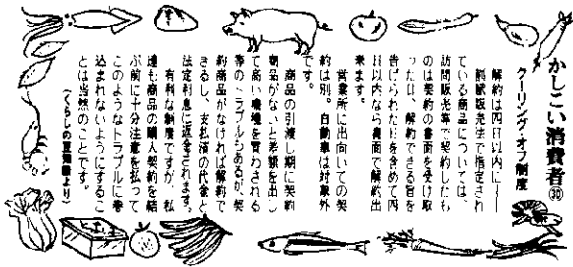 かしこい消費者㉚
クーリング・オフ制度
解約は四日以内に――
割賦販売法で指定され
ている商品については、
訪問販売等で契約したも
のは契約の書面を受け取
った日、解約できる旨を
告げられた日を含めて四
日以内なら書面で解約出
来ます。
営業所に出向いての契
約は別。自動車は対象外
です。
商品の引渡し期に契約
商品がないと差額を出し
て高い機種を買わされる
等のトラブルもあるが、契
約商品がなければ解約で
きるし、支払済の代金と
法定利息に返金されます。
有利な制度ですが、私
達も商品の購入契約を結
ぶ前に十分注意を払って
このようなトラブルに巻
込まれないようにするこ
とは当然のことです。
(くらしの豆知識より)